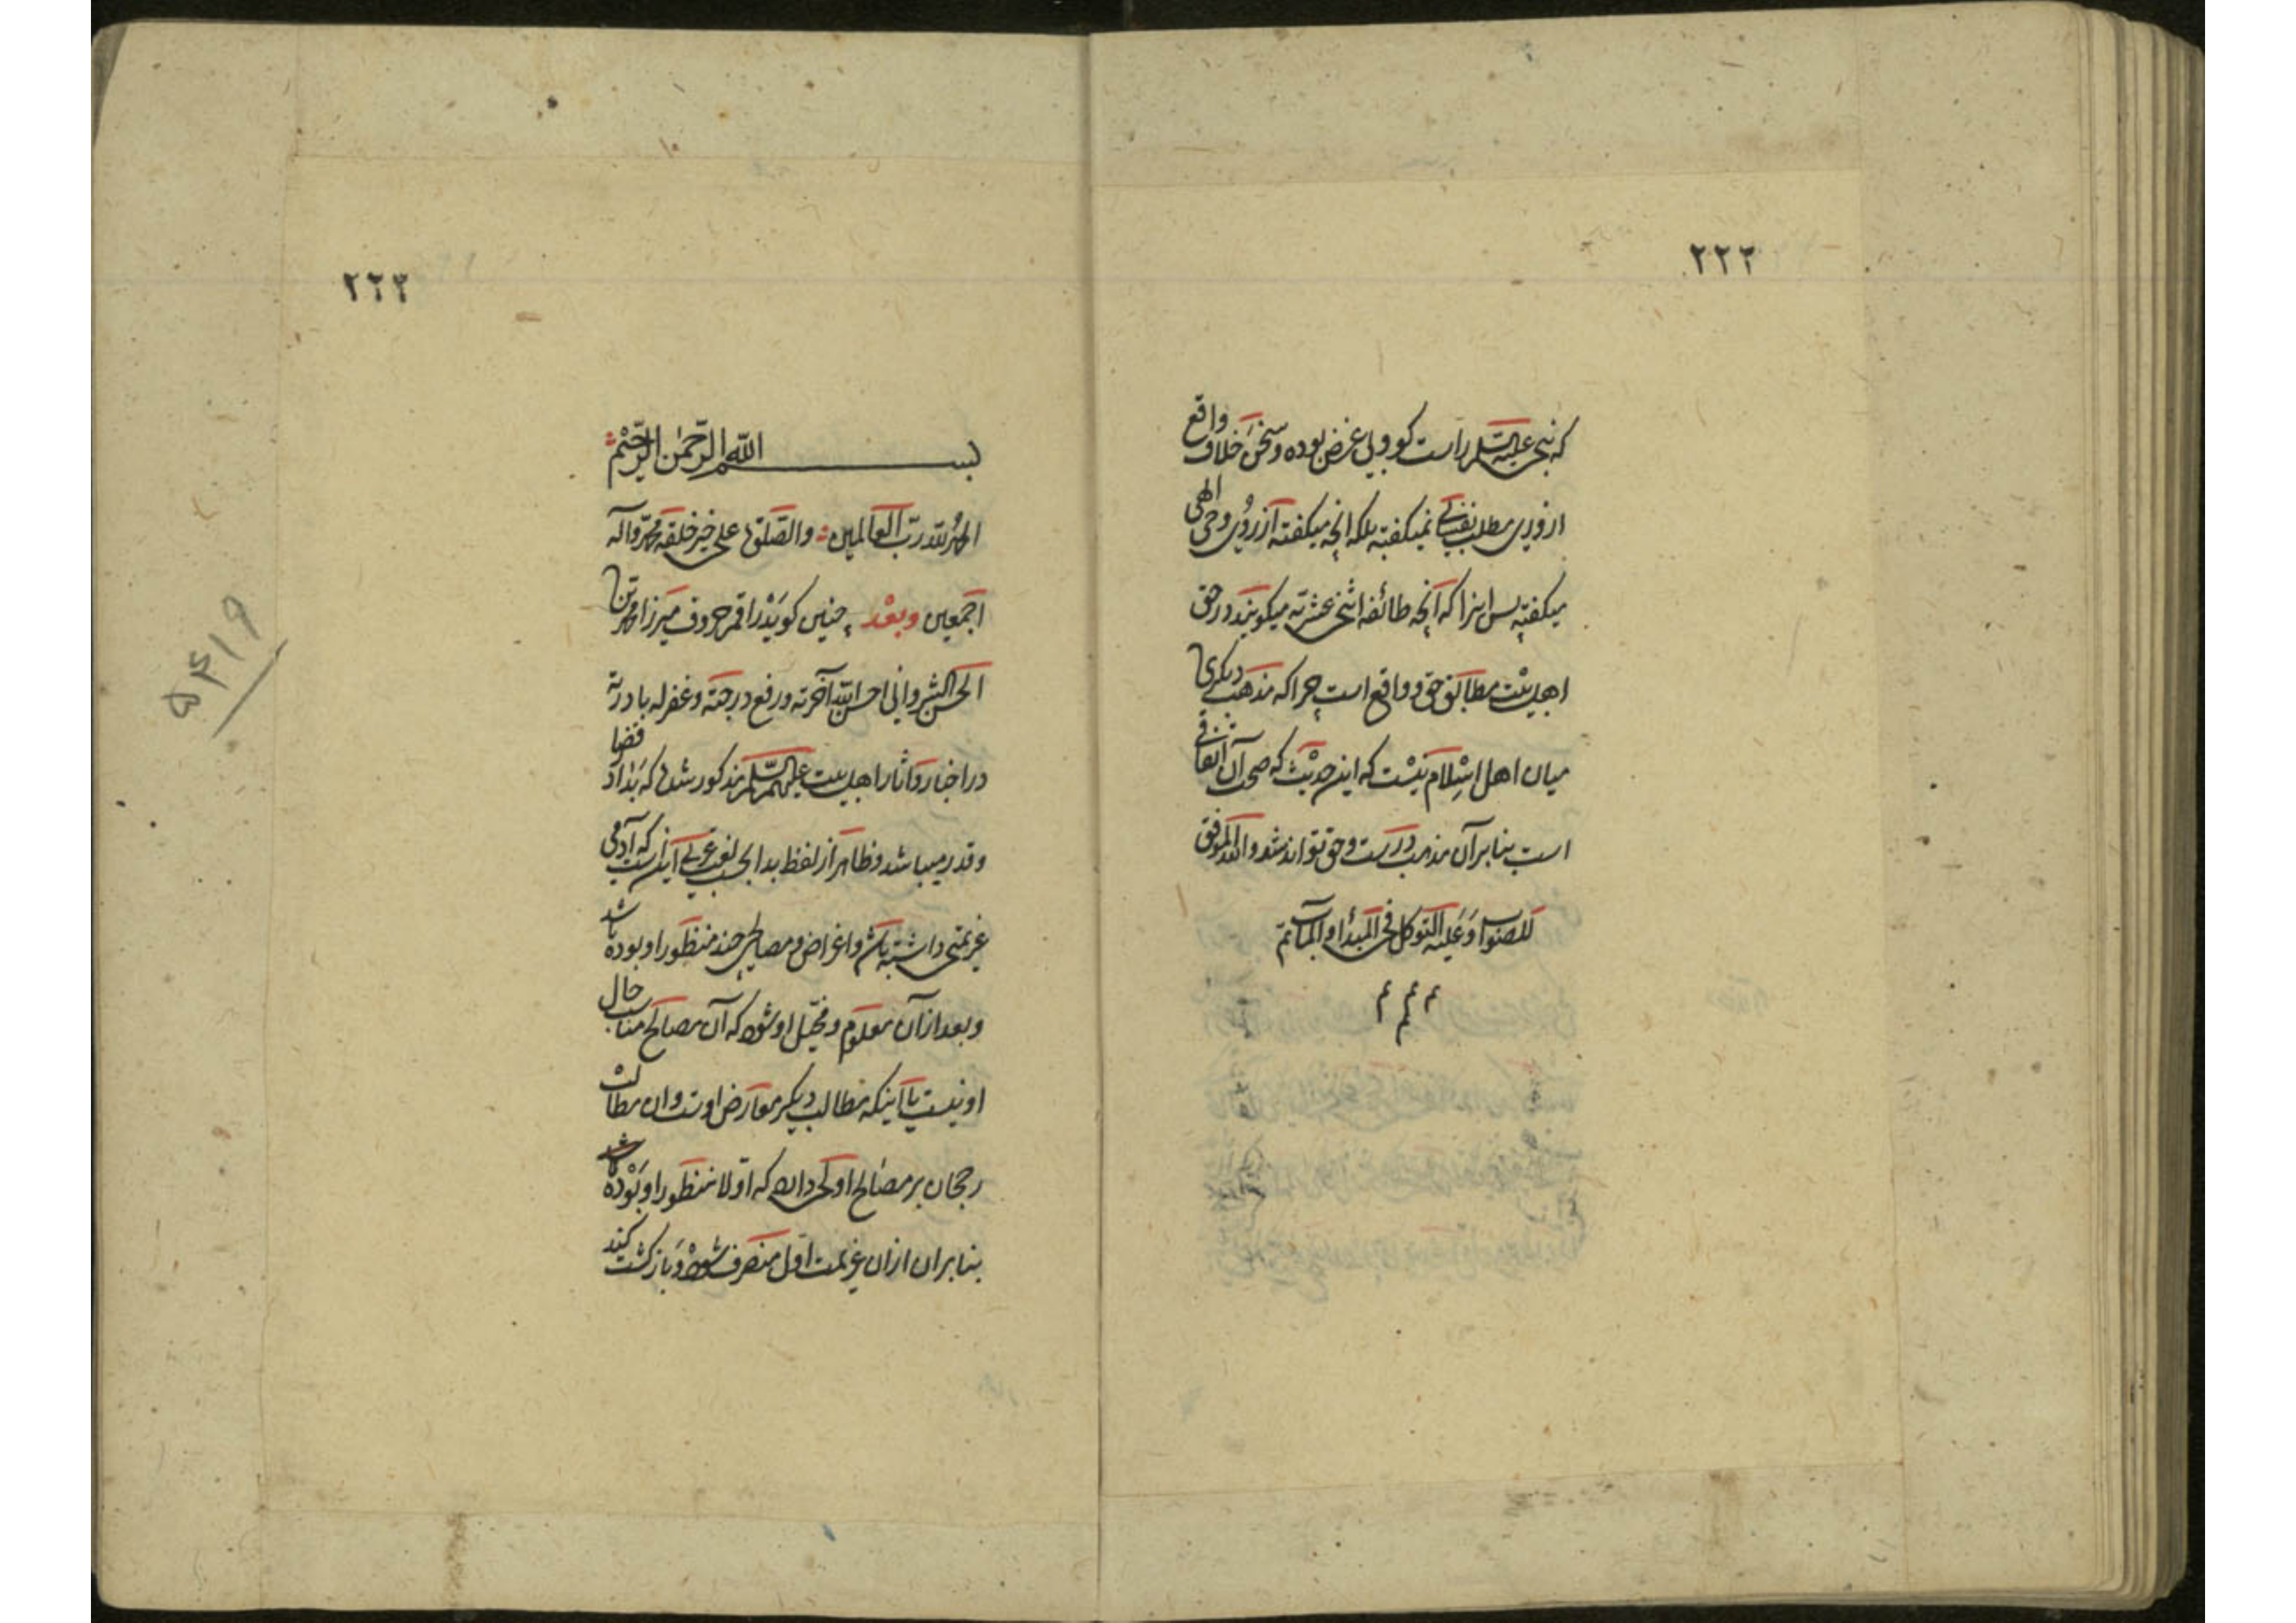 ٢٢٢
که نبی علیه السلم راست کو و بی غرض بوده و سخن خلاف واقع
از برای مطلب نفسی نمیکفته بلکه انچه میکفته از روی وحی الهی
میکفته پس اینرا که آنچه طائفه اثنی عشریه میکویند در حق
اهل بیت مطابق حق و واقع است چرا که مذهب دیکری
میان اهل اسلام نیست که این حدیث که صحت آن اتفاقی
است بنابر آن مذهب درست و حق تواند شد والله الموفق
للصواب وعلیه التوکل فی المبدأ والمآب تم
م م م م
٢٢٣
بسم الله الرحمن الرحیم
الحمد لله رب العالمین والصلوة علی خیر خلقه محمد وآله
اجمعین وبعد چنین کوید راقم حروف میرزا محمد بن
الحسن الشروانی احسن الله آخرته ورفع درجته وغفر له
در اخبار و آثار اهل بیت علیهم السلم مذکور شده که بدا در قضا
و قدر میباشد و ظاهر از لفظ بدا بحسب لغت عربی آینست که آدمی
عزیمتی داشته باشد و اغراض و مصالحی چند منظور او بوده باشد
و بعد از آن معلوم و مخیل او شود که آن مصالح مناسب حال
او نیست یا اینکه مطالب دیکر معارض اوست و ان مطالب
رجحان بر مصالح اولی دارد که اولا منظور او بوده باشد
بنابران ازان عزیمت اول منصرف شود و بازکشت کند
۵۴۱۹